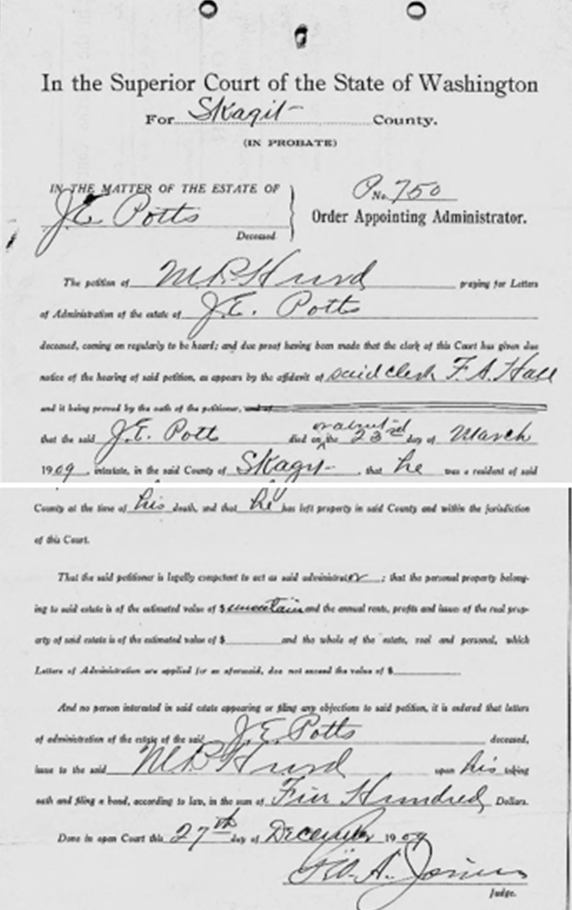 In the Superior Court of the State of Washington
For Skagit County.
(IN PROBATE)
IN THE MATTER OF THE ESTATE OF
J.E. Potts
Deceased
No. 750
Order Appointing Administrator.
The petition of M P Hurd praying for Letters
of Administration of the estate of J.E. Potts
deceased, coming on regularly to be heard; and due proof having been made that the clerk of this Court has given due
notice of the hearing of said petition, as appears by the affidavit of said clerk F. A. Hall
and it being proved by the oath of the petitioner, and of
that the said J.E. Pott died on or about the 23rd day of March
1909, intestate, in the said County of Skagit, that he was a resident of said
County at the time of his death, and that he has left property in said County and within the jurisdiction
of this Court.
That the said petitioner is legally competent to act as said administrator; that the personal property belong-
ing to said estate is of the estimated value of $ uncertain and the annual rents, profits and issues of the real prop-
erty of said estate is of the estimated value of $ and the whole of the estate, real and personal, which
Letters of Administration are applied for as aforesaid, doe not exceed the value of $
And no person interested in said estate appearing or filing any objections to said petition, it is ordered that letters
of administration of the estate of the said J.E. Potts deceased,
issue to the said M P Hurd upon his taking
oath and filing a bond, according to law, in the sum of Five Hundred Dollars.
Done in open Court this 27th day of December 1909
Geo. A. Joiner
Judge.